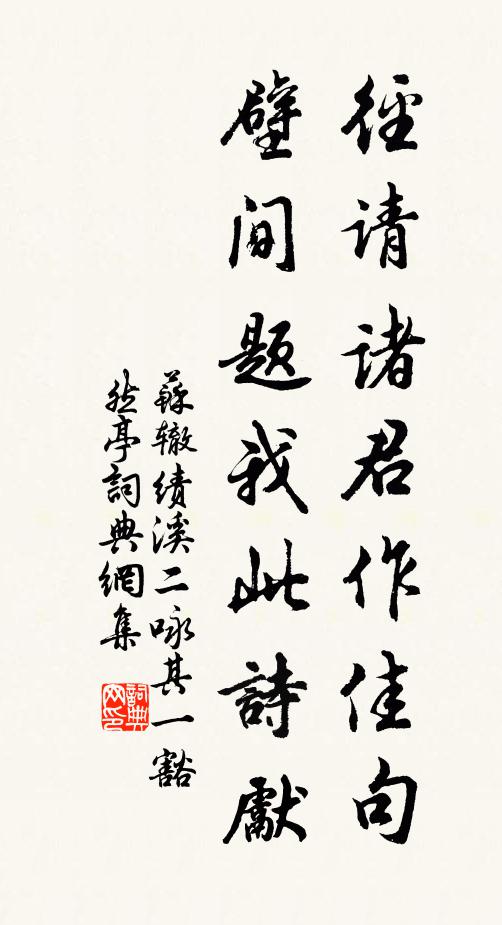 徑請諸君作佳句
壁间题我此詩獻
蘇辙績溪二咏其一豁
然亭詞典網集
詞典网印